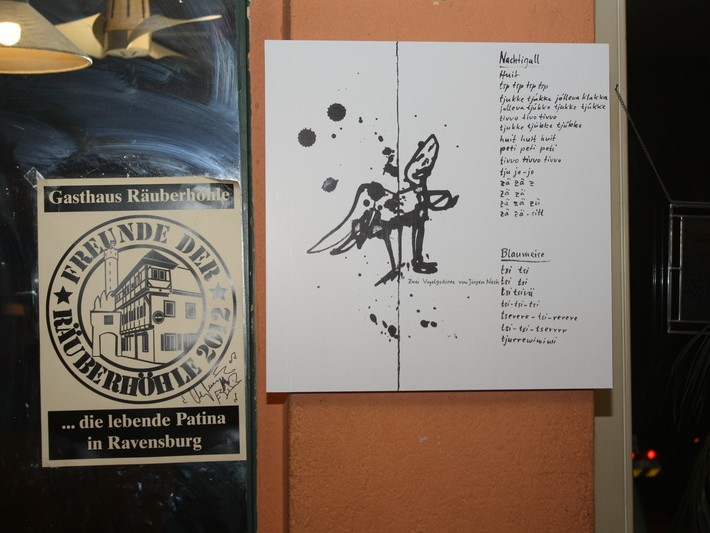 Gasthaus Räuberhöhle
FREUNDE DER
RÄUBERHÖHLE 2012
... die lebende Patina
in Ravensburg
Zwei Vogelgedichte von Jürgen Nash
Nachtigall
Huit
tsp tsp tsp tsp
tjukke tjukka jolleva klakka
jolleva tjükke tjukke tjükke
tivvo tivo tivvo
tjukke tjükke tjükke
huit huit huit
peti peti peti
tivvo tivvo tivvo
tju jo-jo
zä zä z
zä zä
zü zä zü
zä zä-sitt
Blaumeise
tsi tsi
tsi tsi
tsi tsivä
tsi-tsi-tsi
tserere-tsi-rerere
tsi-tsi-tserrrr
tjurrewiwiwi